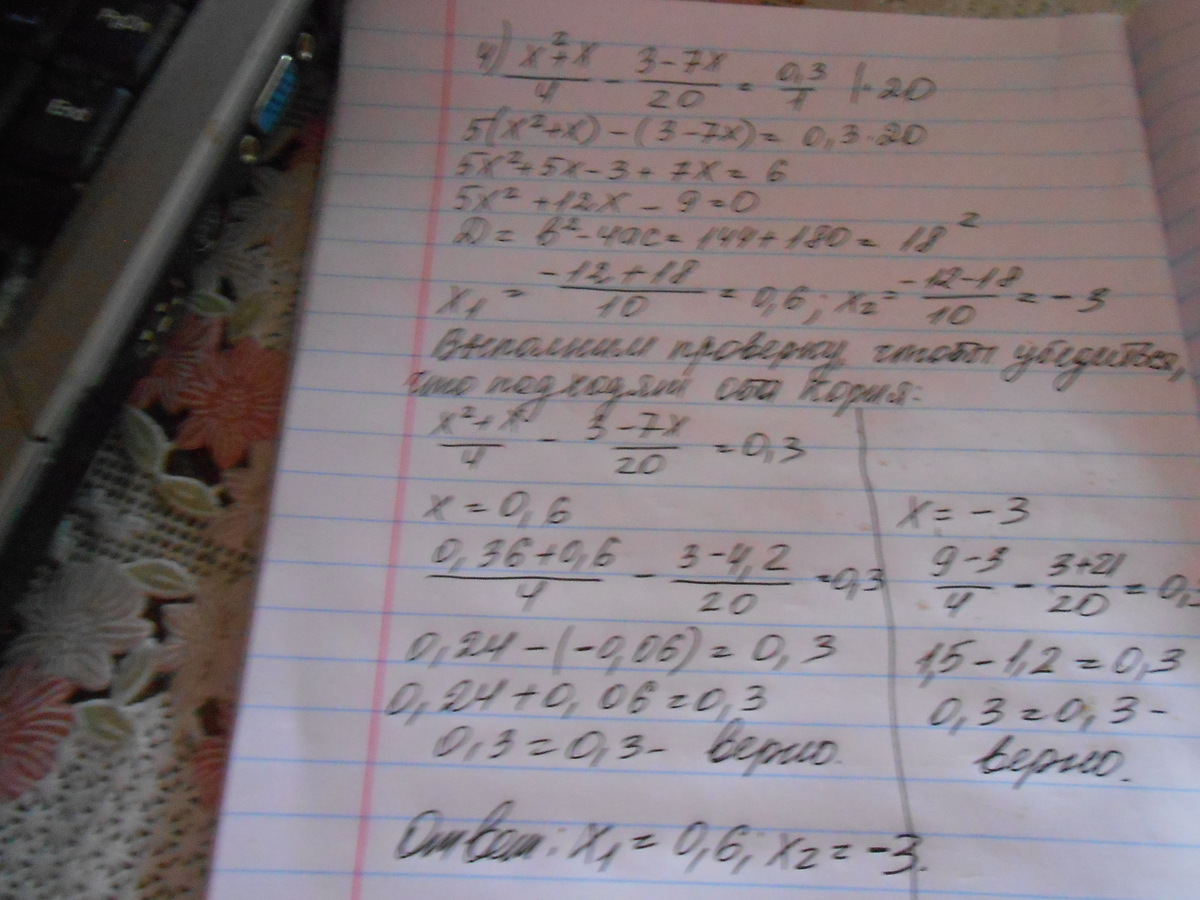 4) (x²+x)/4 - (3-7x)/20 = 0,3/1 |·20
5(x²+x)-(3-7x)=0,3·20
5x²+5x-3+7x=6
5x²+12x-9=0
D=b²-4ac=144+180=18²
x₁=(-12+18)/10=0,6; x₂=(-12-18)/10=-3
Выполним проверку, чтобы убедиться,
что подходят оба корня:
(x²+x)/4 - (3-7x)/20 = 0,3
x=0,6
(0,36+0,6)/4 - (3-4,2)/20 = 0,3
0,24-(-0,06)=0,3
0,24+0,06=0,3
0,3=0,3- верно.
x=-3
(9-3)/4 - (3+21)/20 = 0,3
1,5-1,2=0,3
0,3=0,3-
верно.
Ответ: x₁=0,6; x₂=-3.
Esc